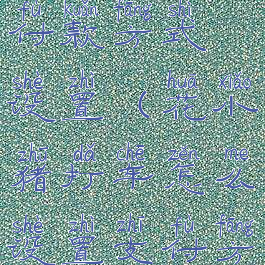 fù kuǎn fāng shì
付款方式
shè zhì huā xiǎo
设置(花小
zhū dǎ chē zěn me
猪打车怎么
shè zhì zhī fù fāng
设置支付方